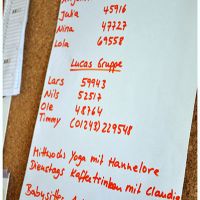 Jaka 45916
Nina 47727
Lola 69558
Lucas Gruppe
Lars 59943
Nils 52517
Ole 48764
Timmy (01243) 229548
Mittwochs Yoga mit Hannelore
Dienstags Kaffeetrinken mit Claudia
Babysitter